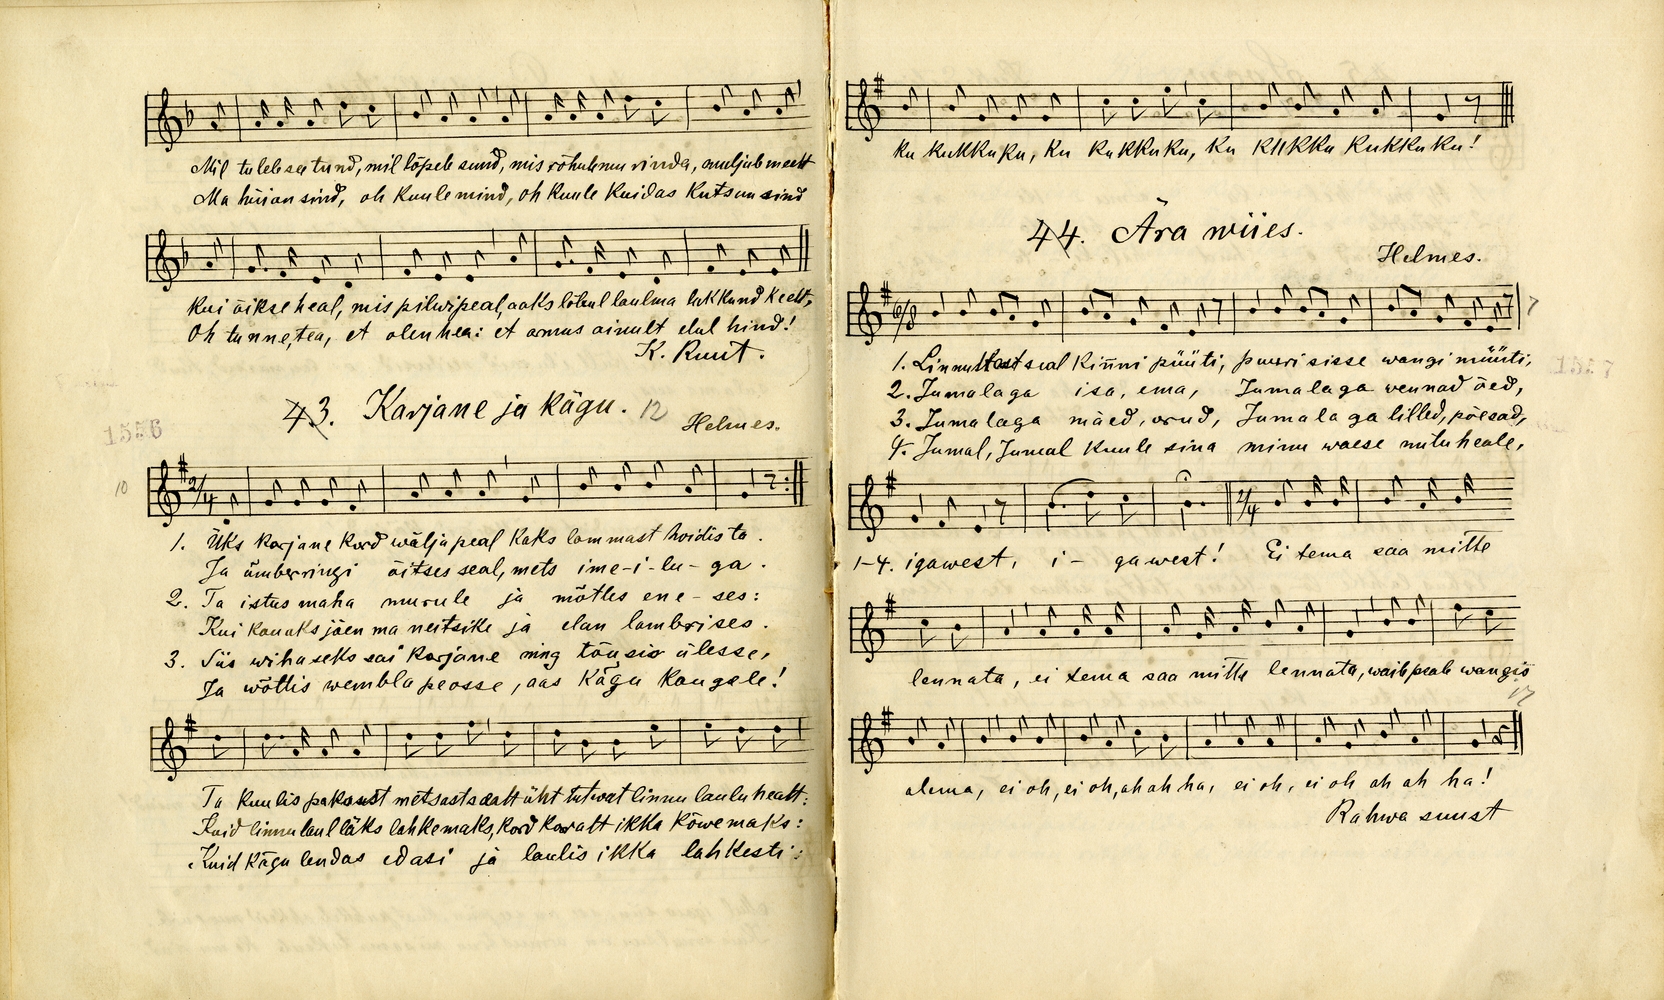 Mil tuleb see tund, mil lõpeb sund, mis rõhub mu rinda, muljub meelt
Ma hüian sind, oh kuule mind, oh kuule kuidas kutsun sind
kui äikse heal, mis pilwi peal, aaks lõbul laulma hakkand keelt,
Oh tunne, tea, et olen hea: et armus ainult elul hind!
K. Ruut.
43. Karjane ja kägu. 12
Helmes.
1556
10
2/4
1. Üks karjane kord wälja peal kaks lammast hoidis ta.
Ja ümberringi õitses seal, mets ime-i-lu-ga.
2. Ta istus maha murule ja mõtles ene-ses:
Kui kauaks jäen ma neitsike ja elan lambrises.
3. Siis wihaseks sai karjane ning tõusis ülesse,
Ja wõttis wembla peosse, aas kägu kaugele!
Ta kuulis paksust metsast sealt üht tutwat linnu laulu healt:
Kuid linnu laul läks lahkemaks, kord korralt ikka kõwemaks:
Kuid kägu lendas edasi ja laulis ikka lahkesti:
ku kukkuku, ku kukkuku, ku kukku kukkuku!
44. Ära wiies.
Helmes.
6/8
7
1557
1. Linnukest seal kinni püüti, puuri sisse wangi müüti,
2. Jumalaga isa, ema, Jumalaga wennad õed,
3. Jumalaga mäed, orud, Jumalaga lilled, põesad,
4. Jumal, Jumal kuule sina minu waese nutu heale,
2/4
1-4. igawest, i- gawest! Ei tema saa mitte
lennata, ei tema saa mitte lennata, waid peab wangis
17
olema, ei oh, ei oh, ah ah ha, ei oh, ei oh ah ah ha!
Rahwa suust